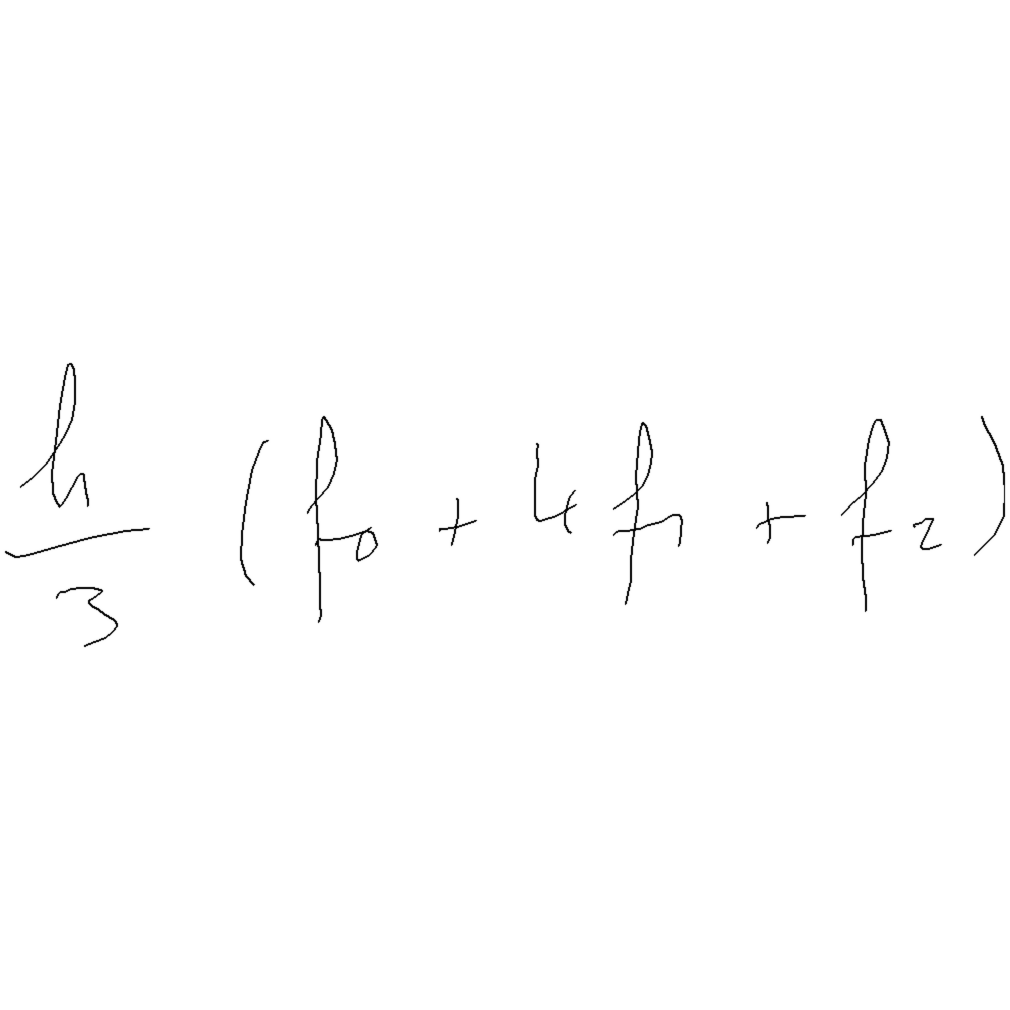 \frac{h}{3} (f_0 + 4f_1 + f_2)